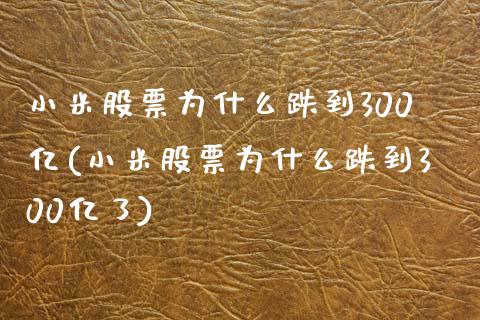 小米股票为什么跌到300
亿(小米股票为什么跌到3
00亿 3)